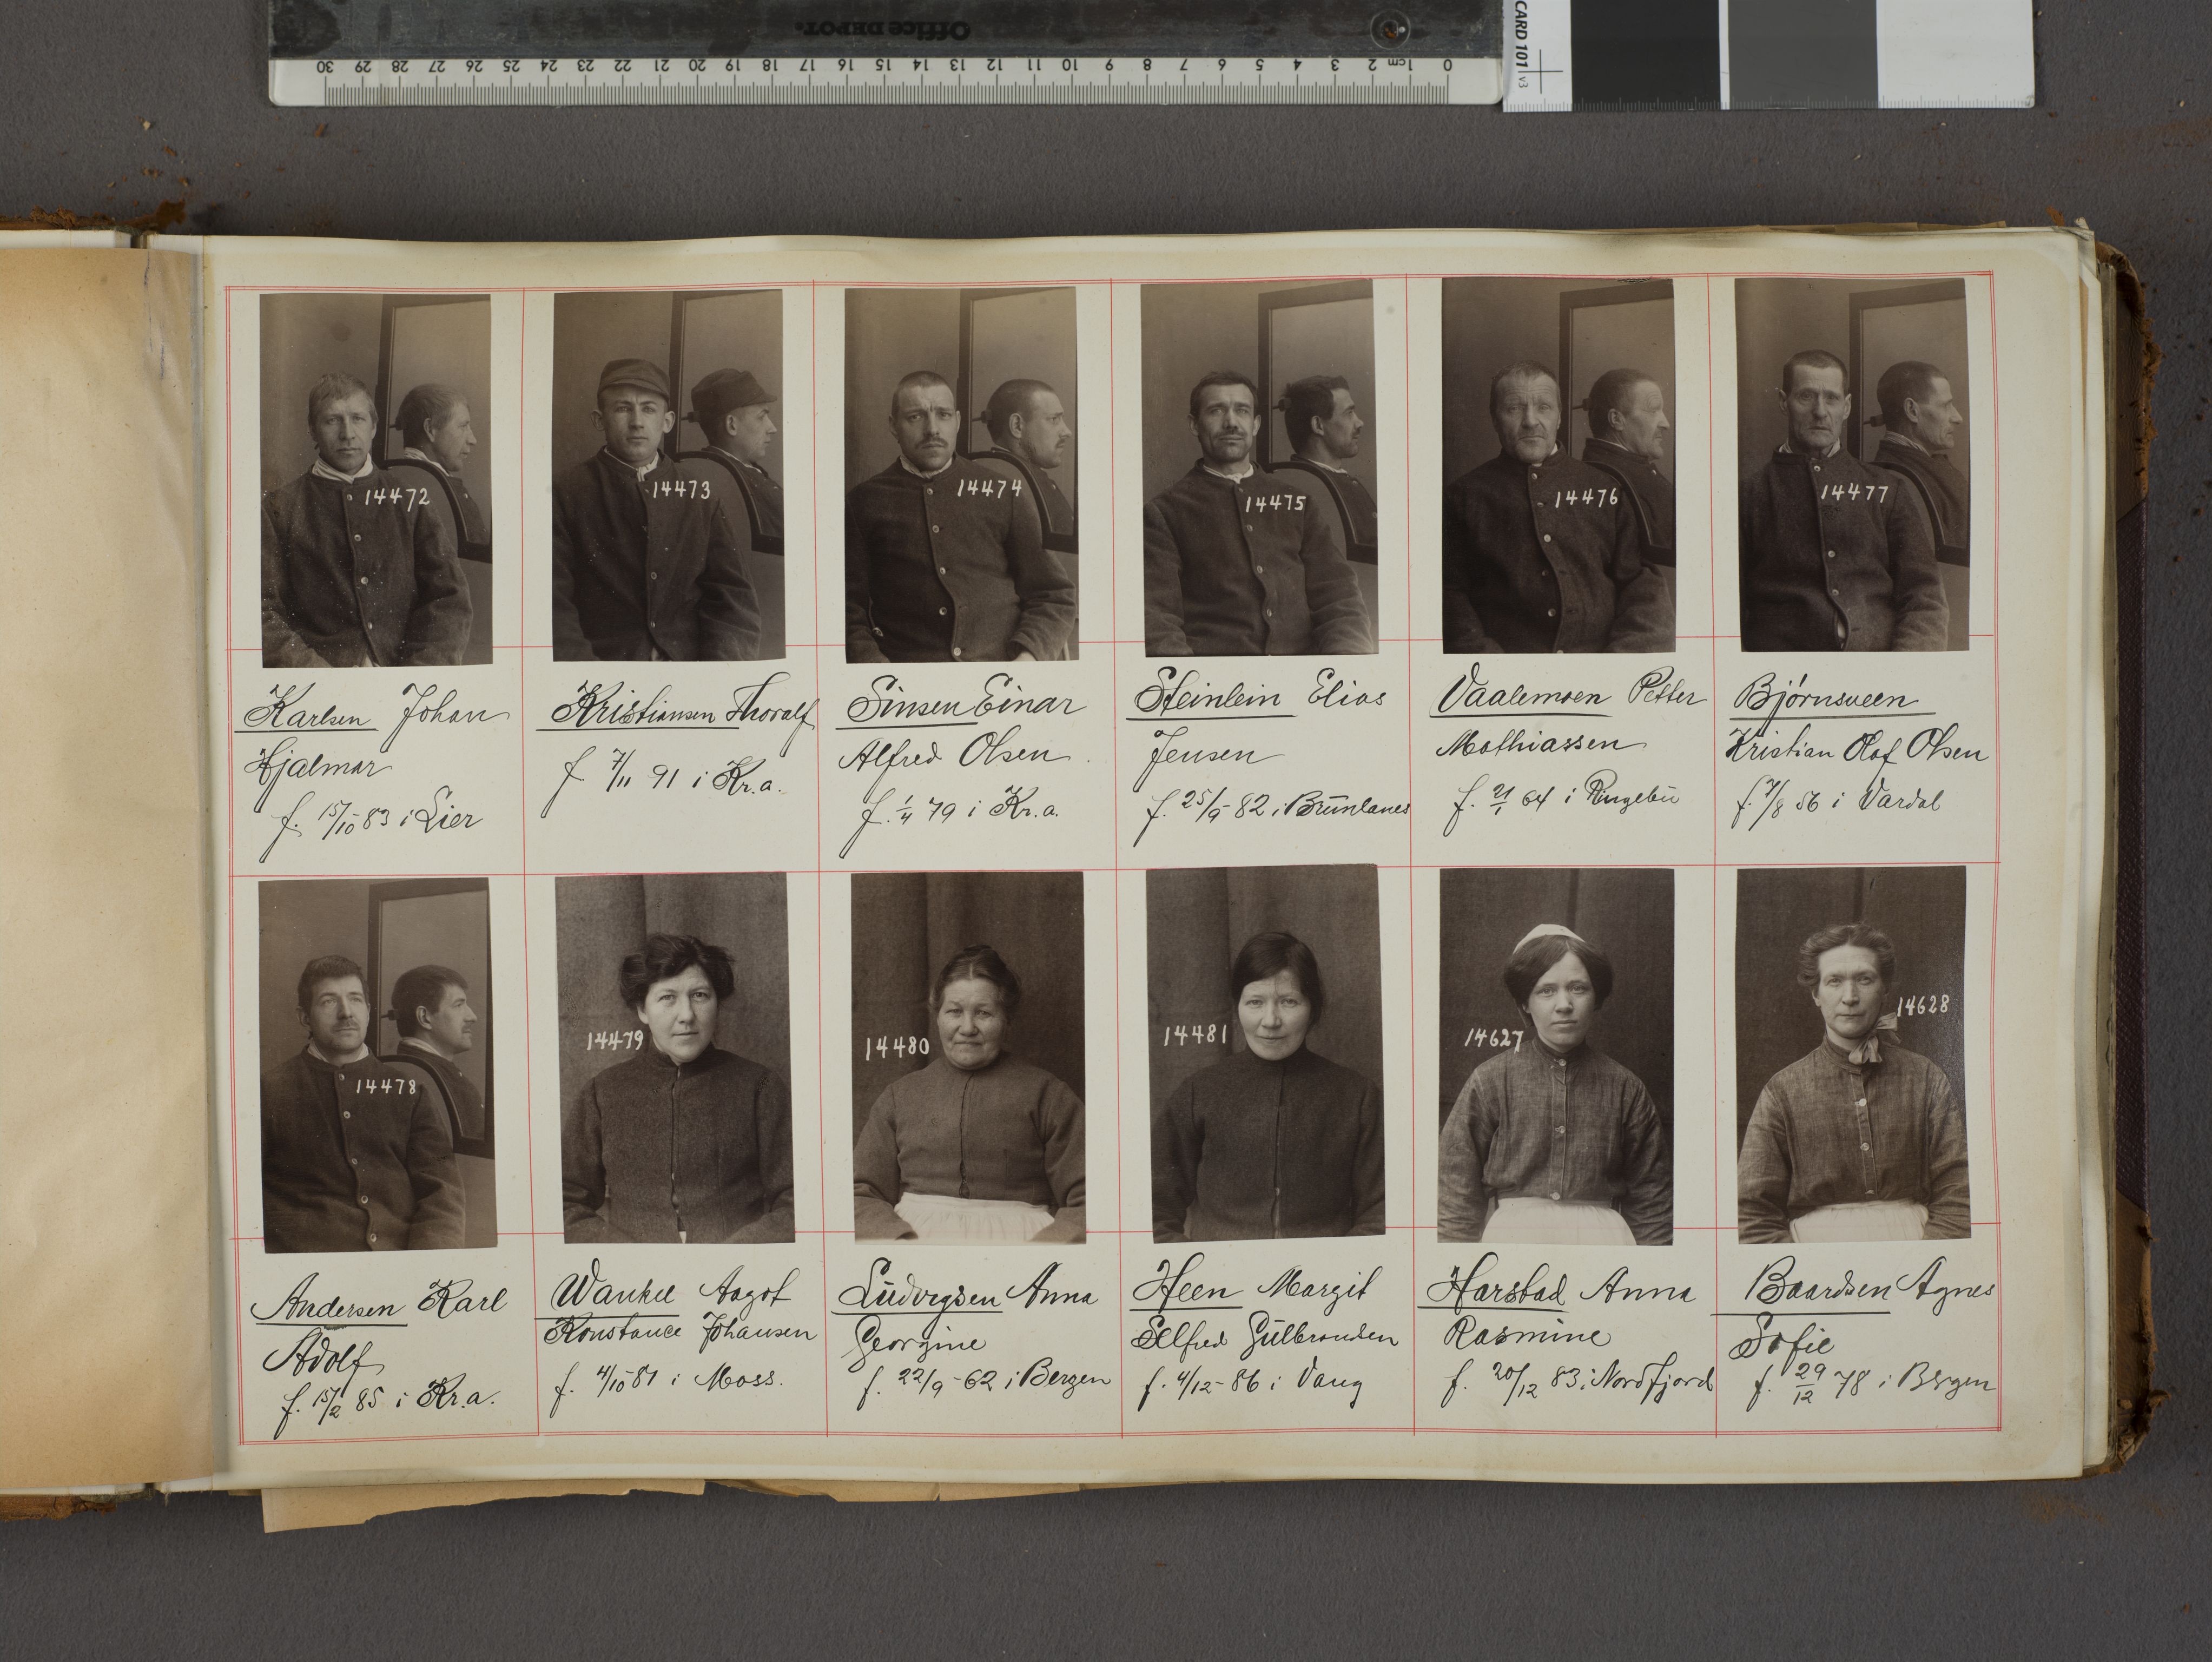 Office DEPOT.
30 29 28 27 26 25 24 23 22 21 20 19 18 17 16 15 14 13 12 11 10 9 8 7 6 5 4 3 2 1cm 0
CARD 101 v3
14472
14473
14474
14475
14476
14477
Karlsen Johan
Hjalmar
f. 15/10 83 i Lier
Kristiansen Thoralf
f 7/11 91 i Kr.a.
Sinsen Einar
Alfred Olsen
f. 1/4 79 i Kr.a.
Steinlein Elias
Jensen
f. 25/9-82 i Brünlanes
Vaalemoen Petter
Mathiassen
f. 21/1 64 i Ringebü
Bjørnsveen
Kristian Olaf Olsen
f. 7/8 56 i Vardal
14478
14479
14480
14481
14627
14628
Andersen Karl
Adolf
f. 15/2 85 i Kr.a.
Wankel Aagot
Konstance Johansen
f. 4/10-81 i Moss.
Lüdvigsen Anna
Georgine
f. 22/9-62 i Bergen
Heen Margit
Gülbransen
f. 4/12-86 i Vang
Harstad Anna
Rasmine
f. 20/12 83 i Nordfjord
Baardsen Agnes
Sofie
f. 29/12 78 i Bergen